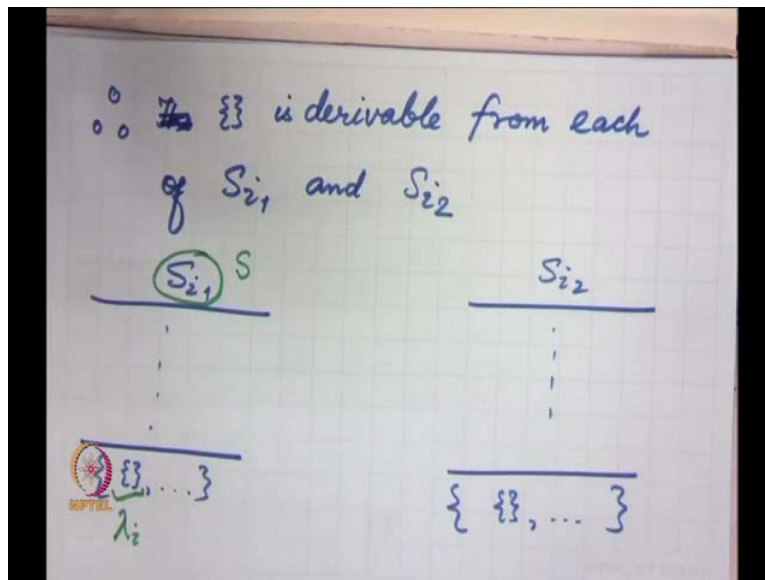 ∴ {} is derivable from each
of S_{i_1} and S_{i_2}
S_{i_1} S S_{i_2}
{ {}, ... } { {}, ... }
λ_i
NPTEL